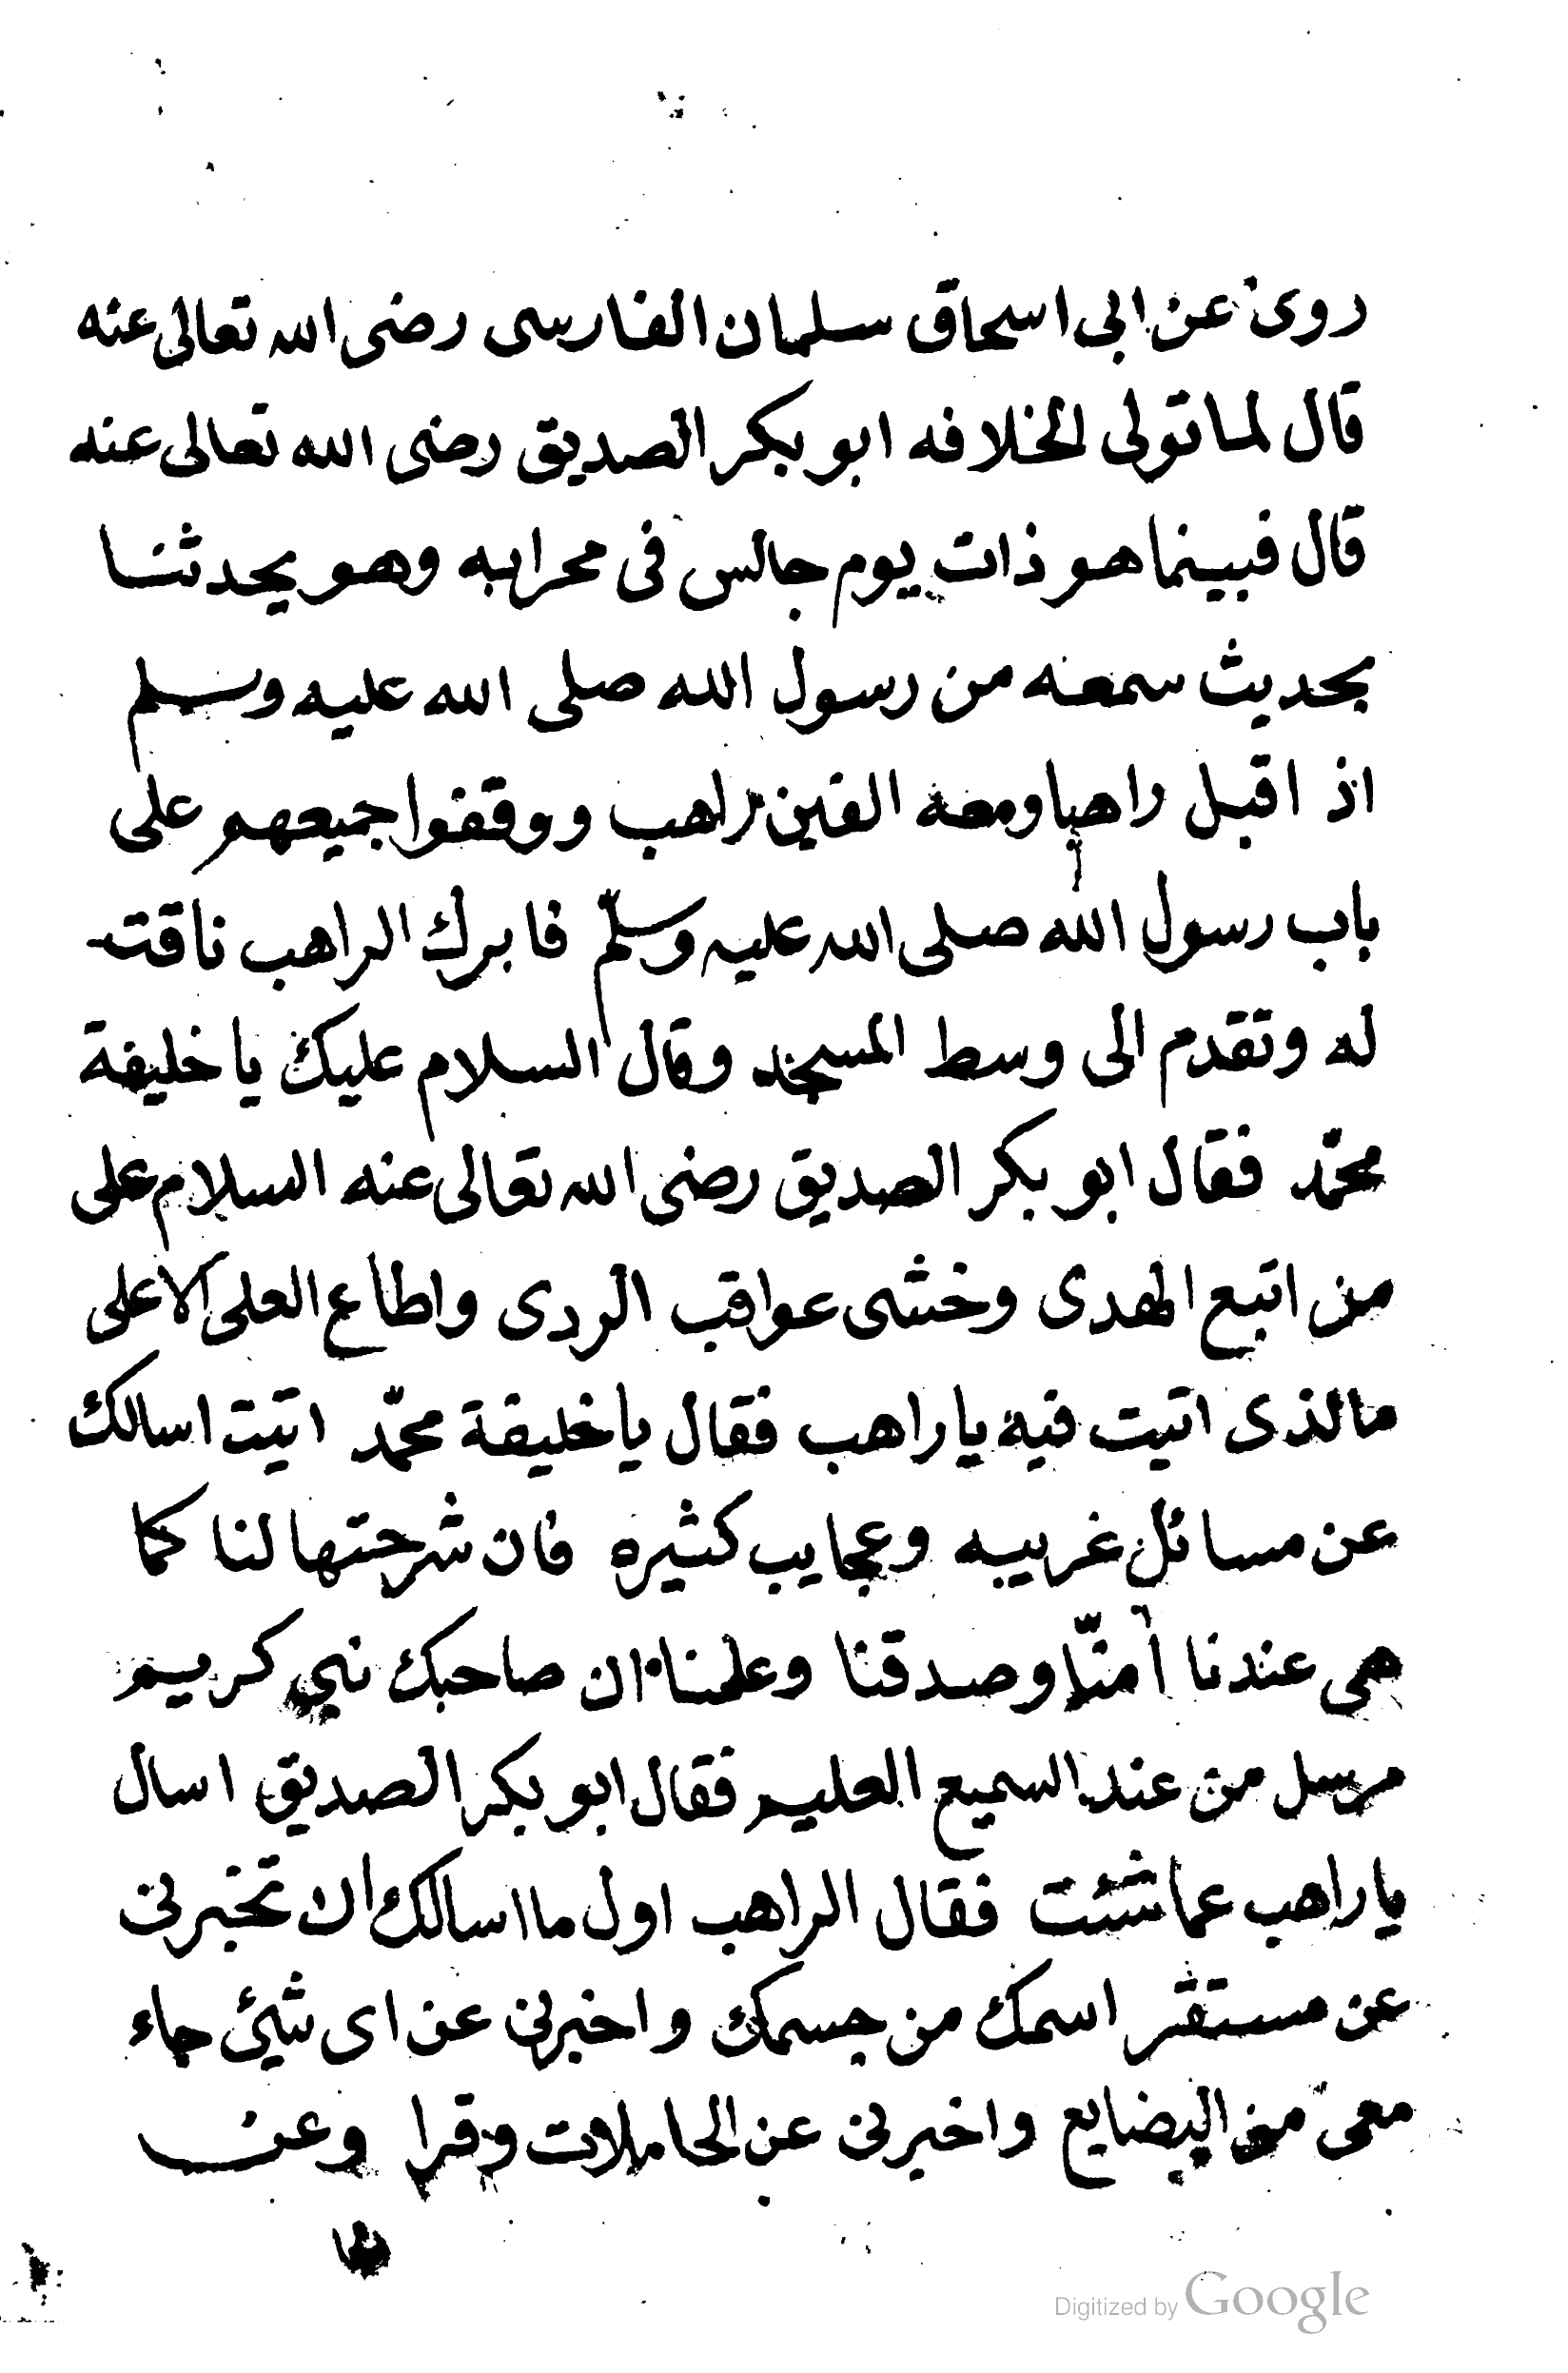 روى عن ابى اسحاق سلمان الفارسى رضى الله تعالى عنه
قال لما تولى الخلافه ابو بكر الصديق رضى الله تعالى عنه
قال فبينما هو ذات يوم جالس فى محرابه وهو يحدثنا
بحديث سمعه من رسول الله صلى الله عليه وسلم
اذ اقبل راهبا ومعه الفين راهب ووقفوا جميعهم على
باب رسول الله صلى الله عليه وسلّم فابرك الراهب ناقت
له وتقدم الى وسط المسجد وقال السلام عليك يا خليفة
محمّد فقال ابو بكر الصديق رضى الله تعالى عنه السلام على
من اتبع الهدى وخشى عواقب الردى واطاع العلى الاعلى
مالذى اتيت فيه يا راهب فقال يا خليفة محمّد اتيت اسالك
عن مسائل غريبه وعجايب كثيره فان شرحتها لنا كما
هى عندنا أمنّا وصدقنا وعلمنا ان صاحبك نبي كريم
مرسل من عند السميع العليم فقال ابو بكر الصديق اسال
يا راهب عما شئت فقال الراهب اول ما اسالك ان تخبرنى
عن مستقر اسمك من جسمك واخبرنى عن اى شيئ جاء
معى من البضايع واخبرنى عن الحاملات وقرا وعن
Digitized by Google